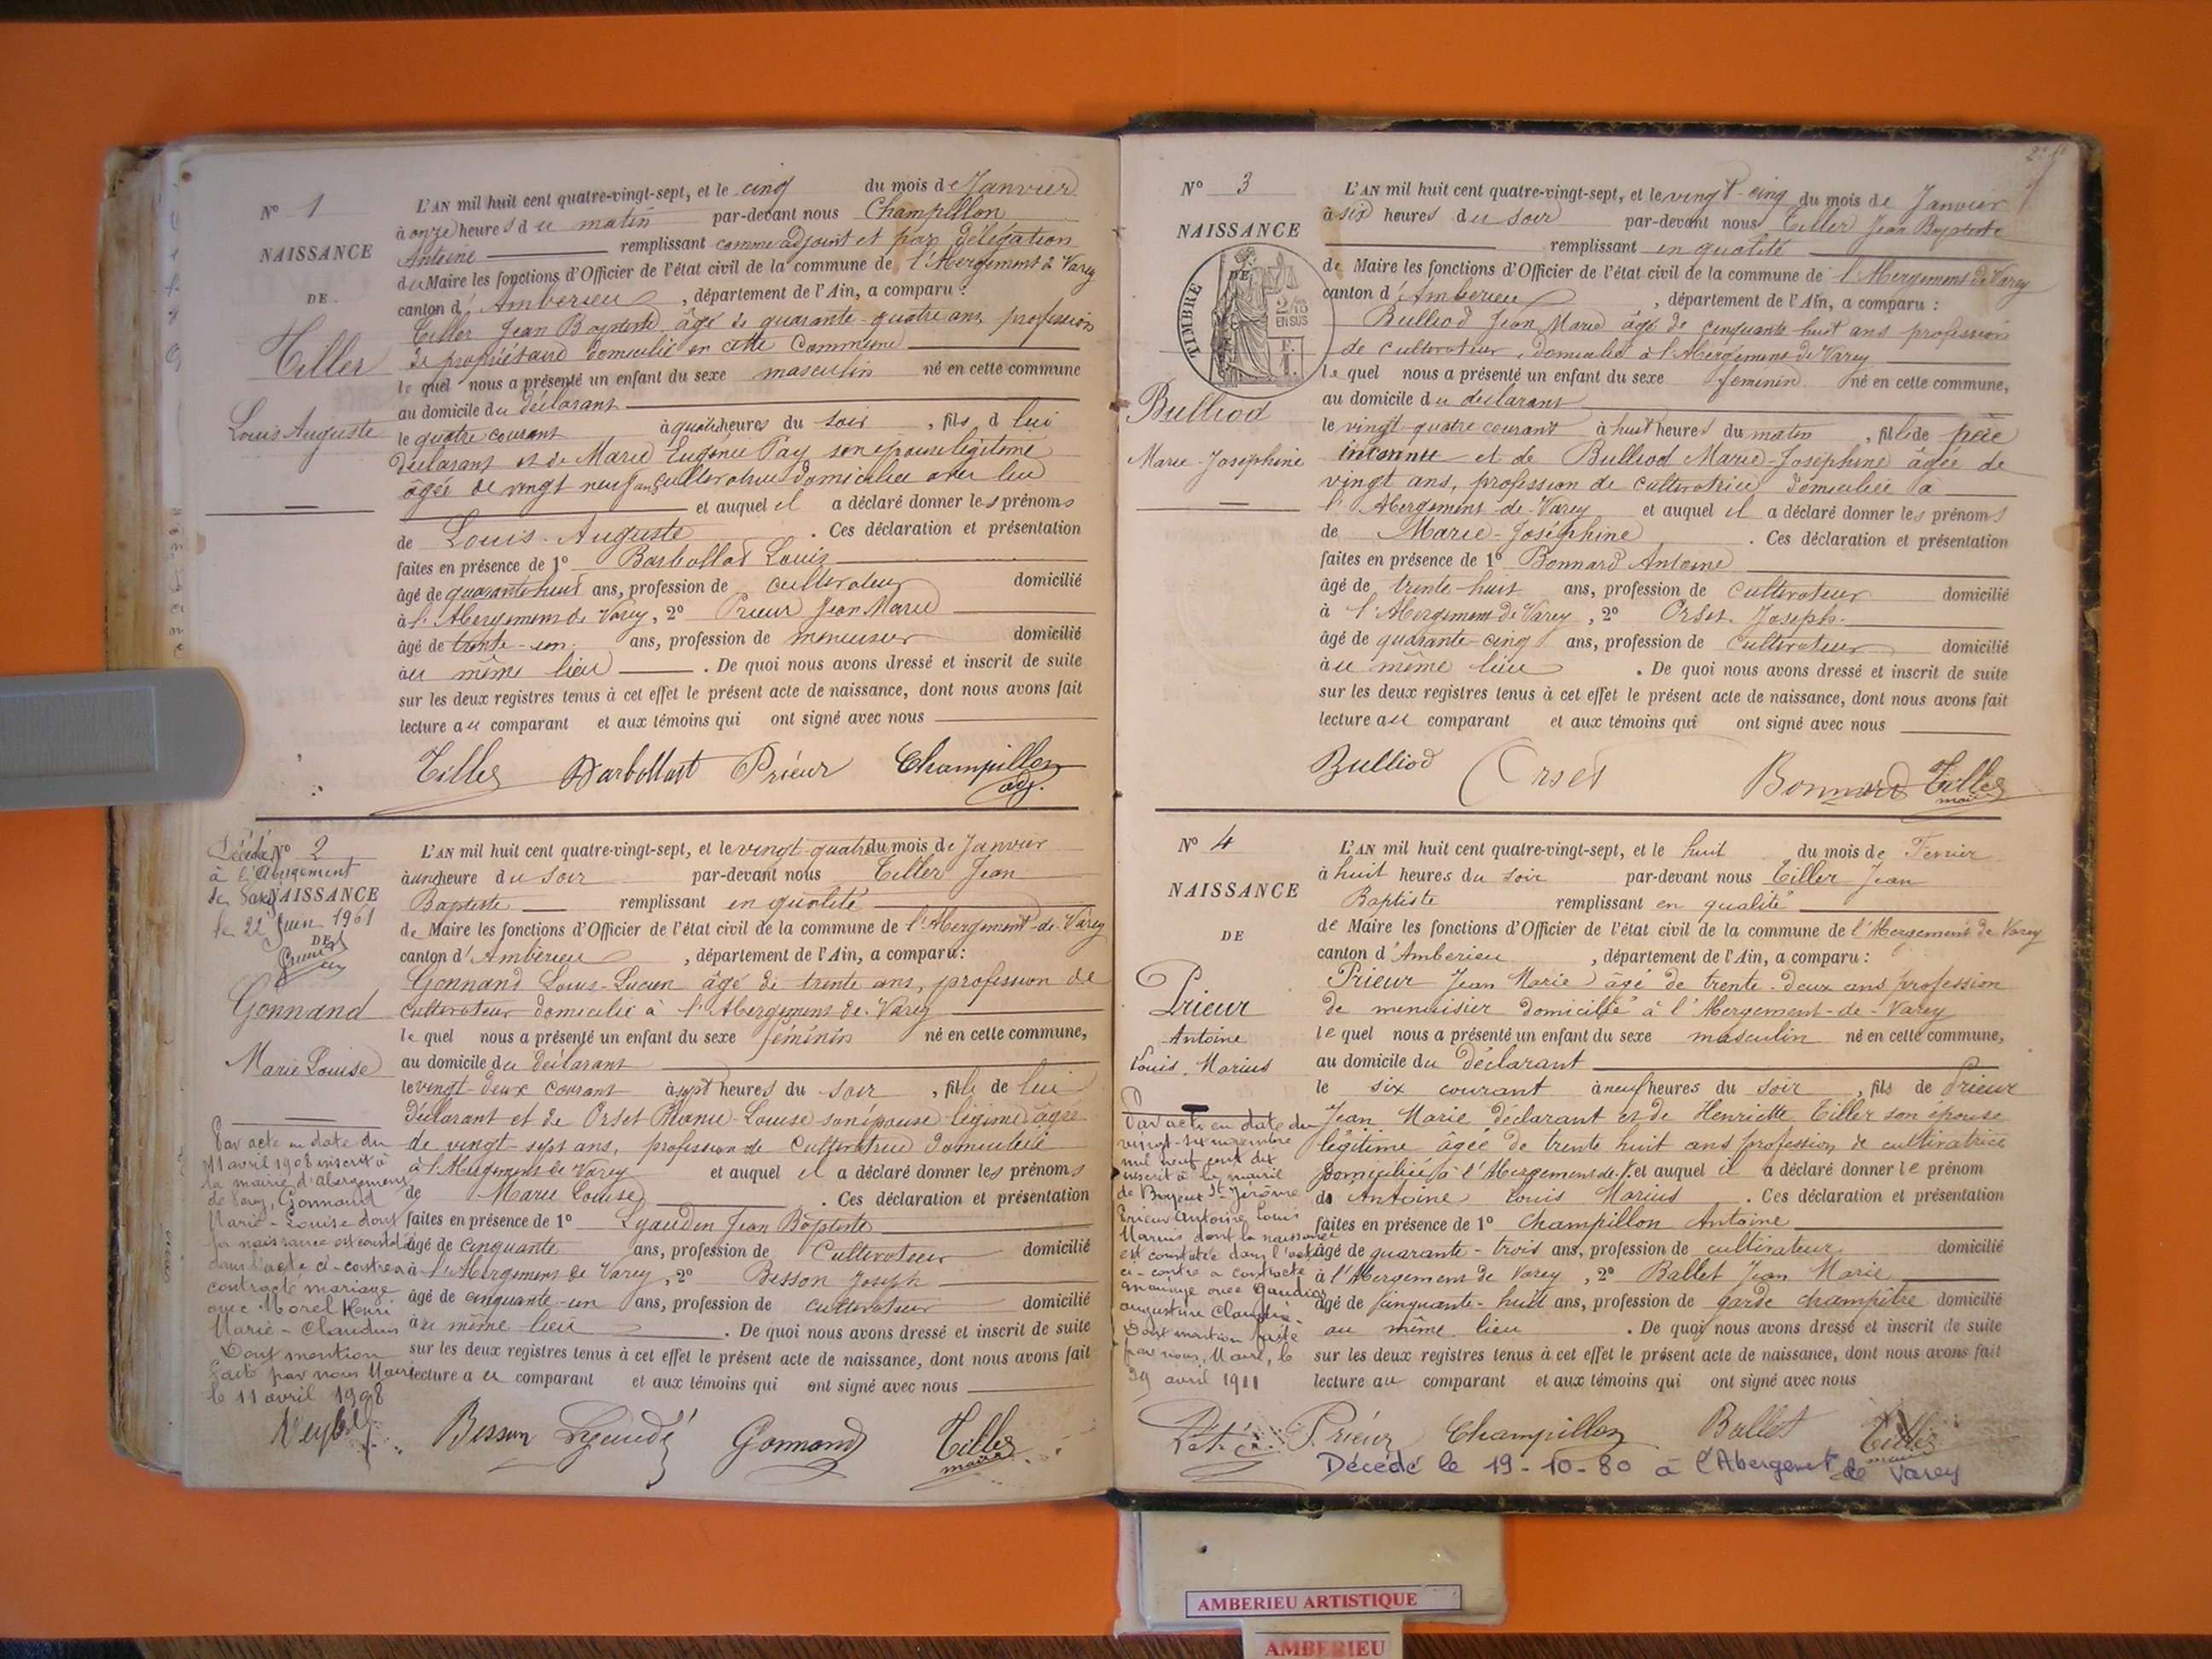 N° 1
NAISSANCE
DE
Tiller
Louis Auguste
L'AN mil huit cent quatre-vingt-sept, et le cinq du mois de Janvier
à onze heures du matin par-devant nous Champillon
Antoine remplissant comme adjoint et par délégation
du Maire les fonctions d'Officier de l'état civil de la commune de l'Abergement de Varey
canton d'Amberieu, département de l'Ain, a comparu :
Tiller Jean Baptiste, âgé de quarante-quatre ans, profession
de propriétaire domicilié en cette Commune
lequel nous a présenté un enfant du sexe masculin né en cette commune
au domicile du déclarant
le quatre courant à quatre heures du soir, fils d lui
déclarant et de Marie Eugénie Pay son épouse légitime
âgée de vingt neuf ans cultivatrice domiciliée avec lui
et auquel il a déclaré donner les prénoms
de Louis-Auguste. Ces déclaration et présentation
faites en présence de 1° Barbollat Louis
âgé de quarante huit ans, profession de cultivateur domicilié
à l'Abergement de Varey, 2° Prieur Jean Marie
âgé de trente-un ans, profession de menuisier domicilié
au même lieu. De quoi nous avons dressé et inscrit de suite
sur les deux registres tenus à cet effet le présent acte de naissance, dont nous avons fait
lecture au comparant et aux témoins qui ont signé avec nous
Tiller Barbollat Prieur Champillon
adj.
N° 2
NAISSANCE
DE
Décédée
à l'Abergement
de Varey
le 22 Juin 1961
Gonnand
Marie Louise
Par acte en date du
11 avril 1908 inscrit à
la mairie d'Abergement
de Varey, Gonnand
Marie-Louise dont
la naissance est constatée
dans l'acte ci-contre a
contracté mariage
avec Morel Henri
Marie-Claudius
Dont mention
faite par nous Maire
le 11 avril 1908
L'AN mil huit cent quatre-vingt-sept, et le vingt-quatre du mois de Janvier
à une heure du soir par-devant nous Tiller Jean
Baptiste remplissant en qualité
de Maire les fonctions d'Officier de l'état civil de la commune de l'Abergement-de-Varey
canton d'Ambérieu, département de l'Ain, a comparu :
Gonnand Louis-Lucien âgé de trente ans, profession de
cultivateur domicilié à l'Abergement de Varey
lequel nous a présenté un enfant du sexe féminin né en cette commune,
au domicile du déclarant
le vingt-deux courant à sept heures du soir, fille de lui
déclarant et de Orset Louise son épouse légime âgée
de vingt-sept ans, profession de cultivatrice domiciliée
à l'Abergement de Varey et auquel il a déclaré donner les prénoms
de Marie Louise. Ces déclaration et présentation
faites en présence de 1° Lyaudin Jean Baptiste
âgé de cinquante ans, profession de Cultivateur domicilié
à l'Abergement de Varey, 2° Besson Joseph
âgé de cinquante-un ans, profession de cultivateur domicilié
au même lieu. De quoi nous avons dressé et inscrit de suite
sur les deux registres tenus à cet effet le présent acte de naissance, dont nous avons fait
lecture au comparant et aux témoins qui ont signé avec nous
Besson Gonnand Tiller
maire
N° 3
NAISSANCE
DE
TIMBRE
2/10
EN SUS
Bulliod
Marie-Joséphine
L'AN mil huit cent quatre-vingt-sept, et le vingt-cinq du mois de Janvier
à six heures du soir par-devant nous Tiller Jean Baptiste
remplissant en qualité
de Maire les fonctions d'Officier de l'état civil de la commune de l'Abergement de Varey
canton d'Amberieu, département de l'Ain, a comparu :
Bulliod Jean Marie âgé de cinquante huit ans profession
de cultivateur, domicilié à l'Abergement de Varey
lequel nous a présenté un enfant du sexe féminin né en cette commune,
au domicile du déclarant
le vingt-quatre courant à huit heures du matin, fille de père
inconnu et de Bulliod Marie-Joséphine âgée de
vingt ans, profession de cultivatrice domiciliée à
l'Abergement-de-Varey et auquel il a déclaré donner les prénoms
de Marie-Joséphine. Ces déclaration et présentation
faites en présence de 1° Bonnard Antoine
âgé de trente-huit ans, profession de cultivateur domicilié
à l'Abergement de Varey, 2° Orset Joseph
âgé de quarante-cinq ans, profession de cultivateur domicilié
au même lieu. De quoi nous avons dressé et inscrit de suite
sur les deux registres tenus à cet effet le présent acte de naissance, dont nous avons fait
lecture au comparant et aux témoins qui ont signé avec nous
Bulliod Orset Bonnard Tiller
maire
N° 4
NAISSANCE
DE
Prieur
Antoine
Louis Marius
Par acte en date du
vingt-six novembre
mil neuf cent dix
inscrit à la mairie
de Boyeux St-Jérôme
Prieur Antoine Louis
Marius dont la naissance
est constatée dans l'acte
ci-contre a contracté
mariage avec Gaudio
augustine Claudia
Dont mention faite
par nous, Maire, le
29 avril 1911
L'AN mil huit cent quatre-vingt-sept, et le huit du mois de Fevrier
à huit heures du soir par-devant nous Tiller Jean
Baptiste remplissant en qualité
de Maire les fonctions d'Officier de l'état civil de la commune de l'Abergement de Varey
canton d'Amberieu, département de l'Ain, a comparu :
Prieur Jean Marie âgé de trente-deux ans profession
de menuisier domicilié à l'Abergement-de-Varey
lequel nous a présenté un enfant du sexe masculin né en cette commune,
au domicile du déclarant
le six courant à neuf heures du soir, fils de Prieur
Jean Marie déclarant et de Henriette Tiller son épouse
légitime âgée de trente huit ans profession de cultivatrice
domiciliée à l'Abergement de V. et auquel il a déclaré donner le prénom
de Antoine Louis Marius. Ces déclaration et présentation
faites en présence de 1° Champillon Antoine
âgé de quarante-trois ans, profession de cultivateur domicilié
à l'Abergement de Varey, 2° Ballet Jean Marie
âgé de cinquante-huit ans, profession de garde champêtre domicilié
au même lieu. De quoi nous avons dressé et inscrit de suite
sur les deux registres tenus à cet effet le présent acte de naissance, dont nous avons fait
lecture au comparant et aux témoins qui ont signé avec nous
Prieur Champillon Ballet Tiller
maire
Décédé le 19-10-80 à l'Abergemt de Varey
AMBERIEU ARTISTIQUE
AMBERIEU